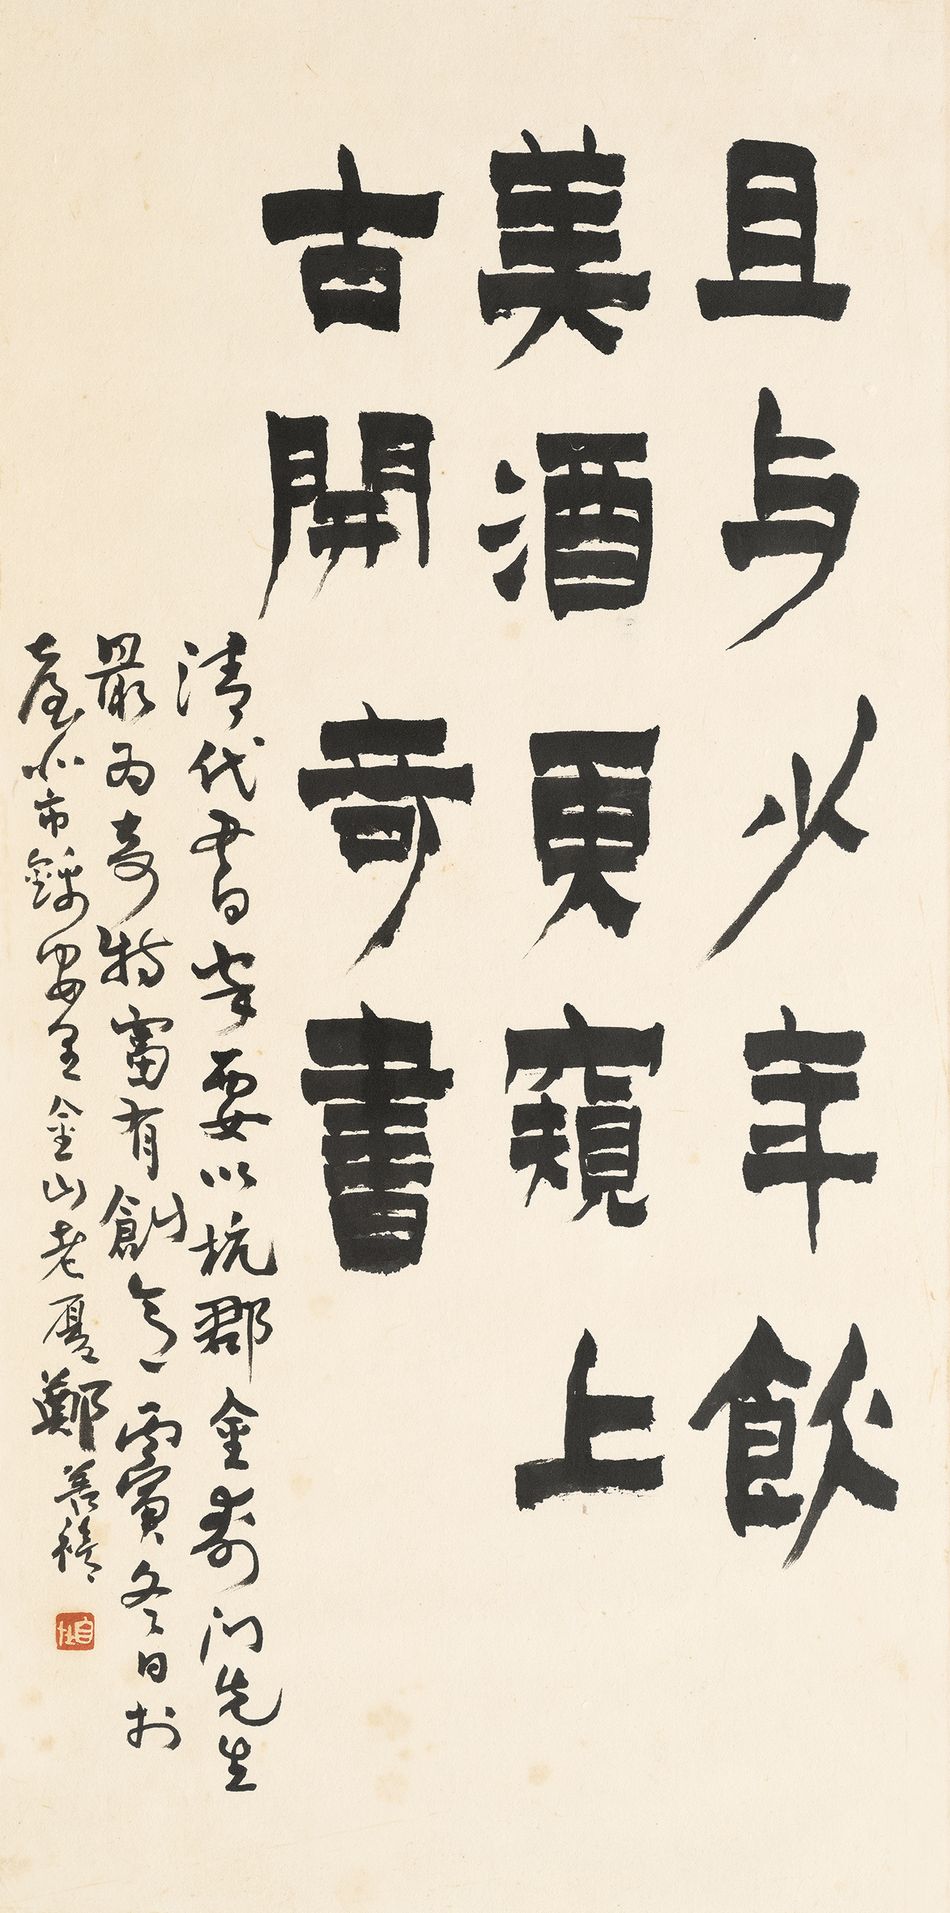 且与少年飲
美酒更窺上
古開奇書
清代書家要以杭郡金壽门先生
最為奇特富有創意丙寅冬日於
臺北市錦安里金山老厦鄭善禧